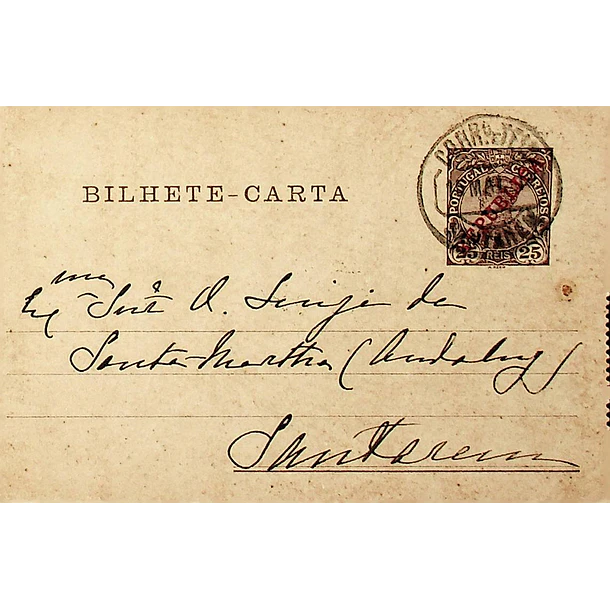 BILHETE-CARTA
PORTUGAL CORREIOS
REPUBLICA
25 REIS 25
MAI
Exma Snr.ª D.
da
Santa Martha (Andaluz)
Santarem